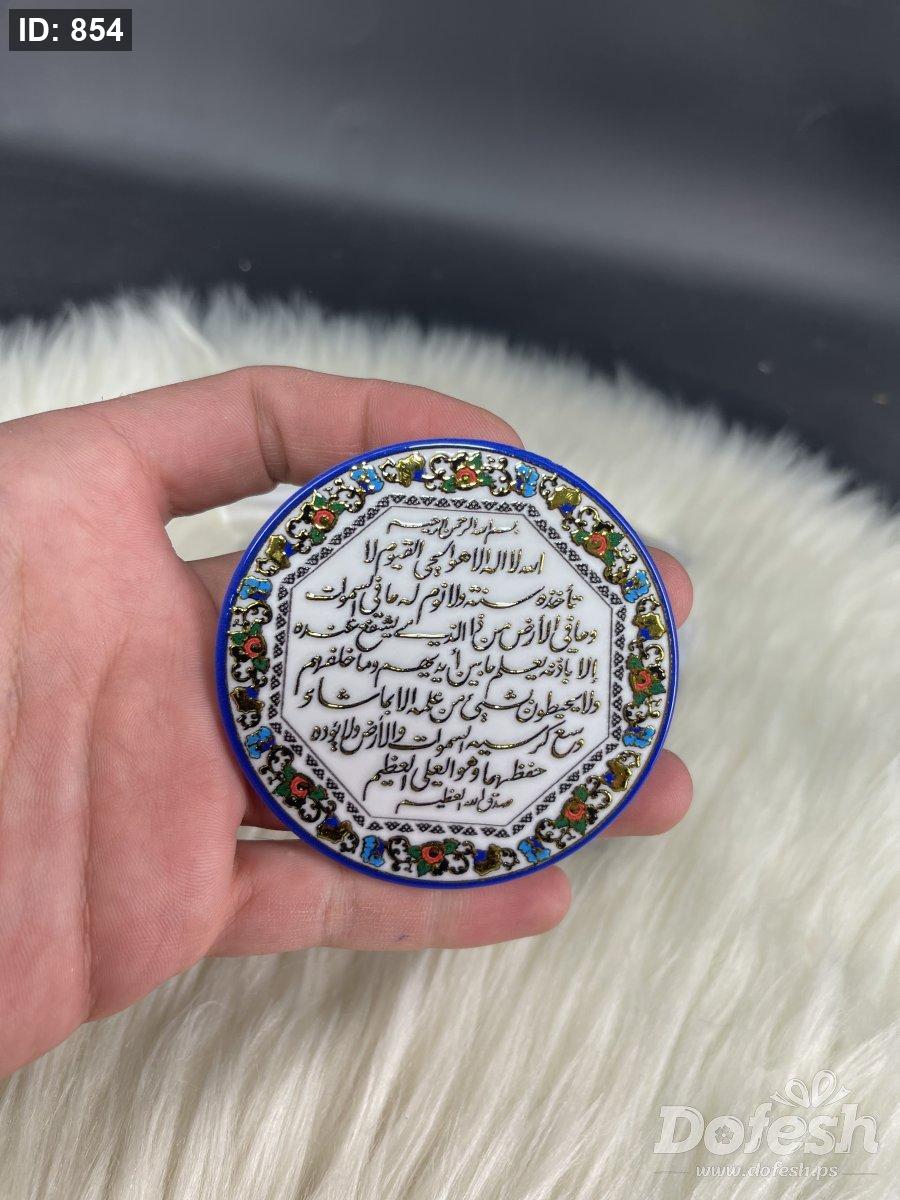 ID: 854
بسم الله الرحمن الرحيم
الله لا اله الا هو الحي القيوم لا
تأخذه سنة ولا نوم له ما في السموت
وما في الأرض من ذا الذي يشفع عنده
إلا باذنه يعلم ما بين أيديهم وما خلفهم
ولا يحيطون بشيئ من علمه الا بما شاء
وسع كرسيه السموت والأرض ولا يؤده
حفظهما وهو العلي العظيم
صدق الله العظيم
Dofesh
www.dofesh.ps